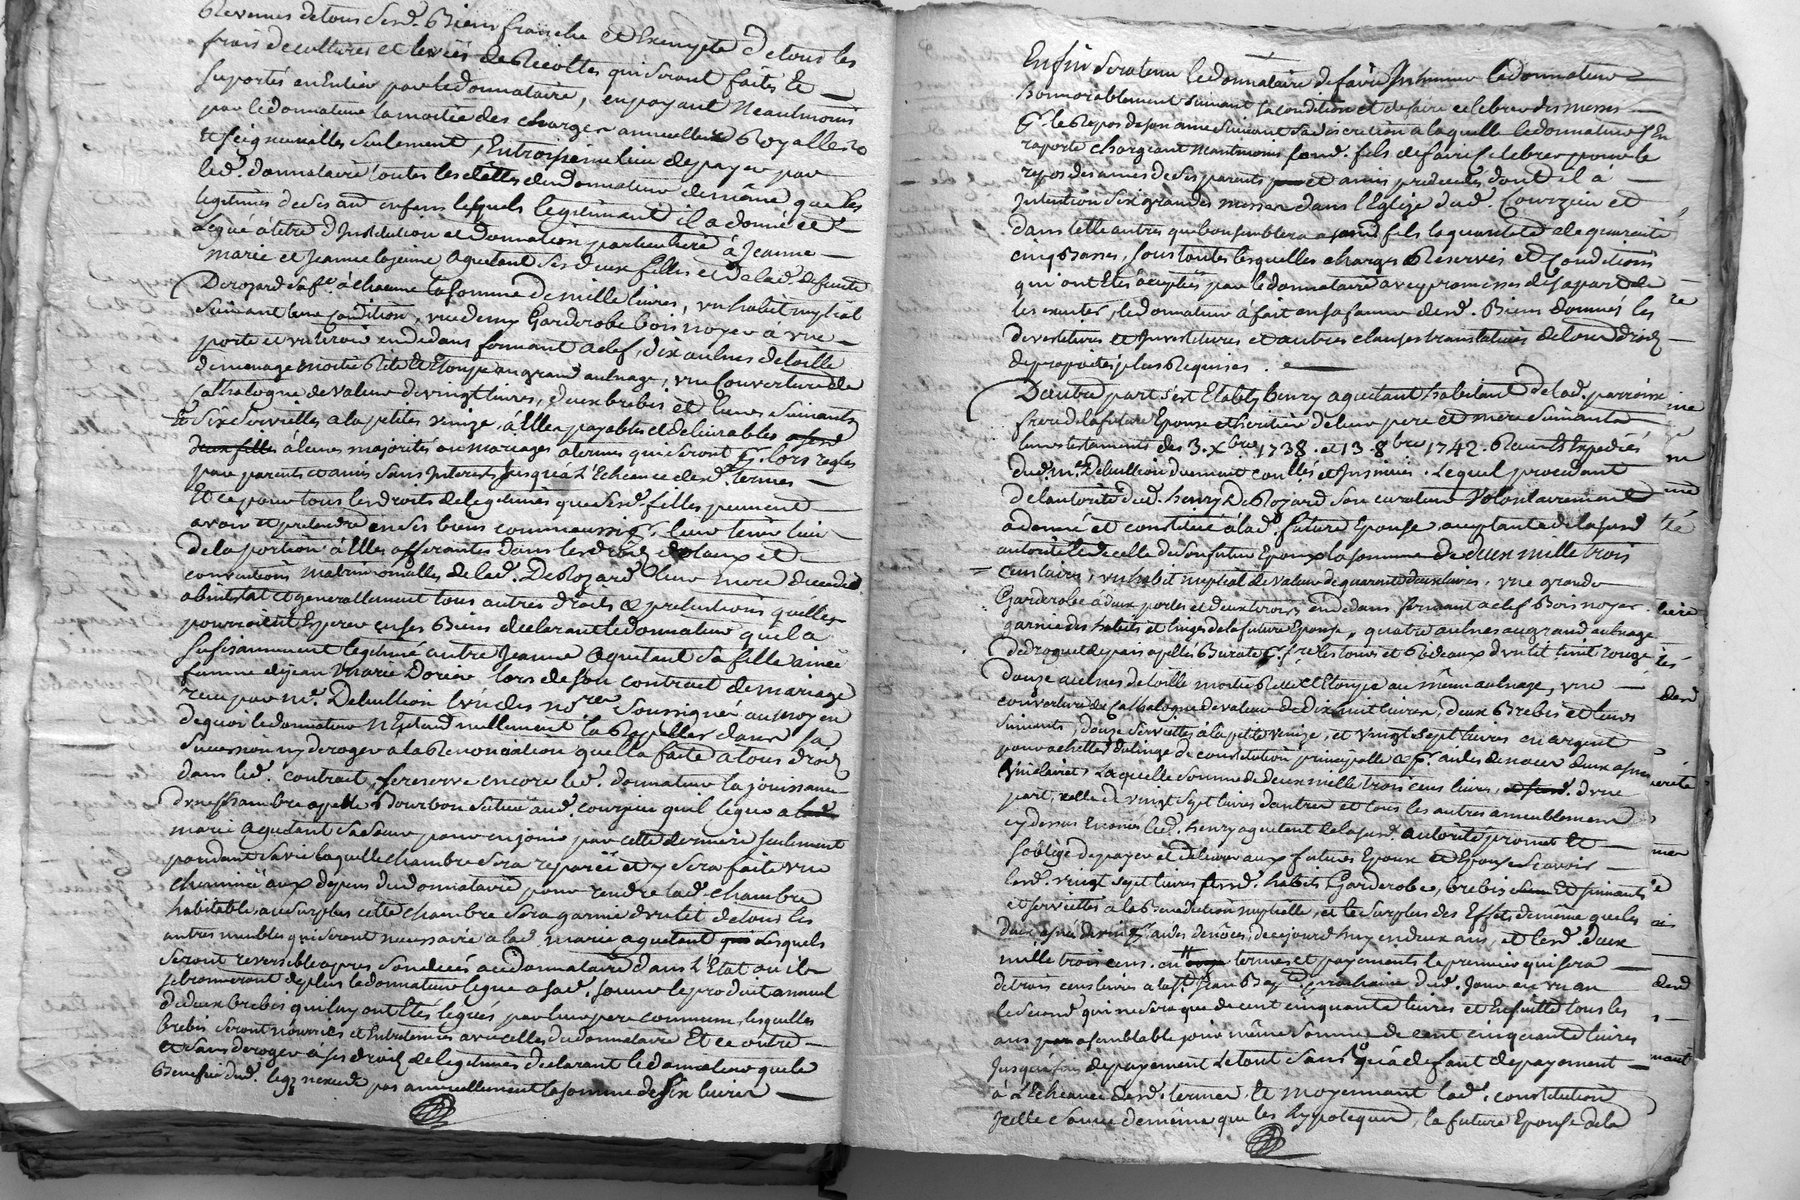 Revenus de tous sesd. Biens franche et Exempte de tous les
frais de cultures et levées des Recoltes qui seront faites Et
suportés en Entier par le donnataire, en payant Neantmoins
par le donnateur la moitié des charges annuelles Royalles
et seigneurialles seulement, En troisieme lieu de payer par
led. donnataire toutes les dettes dud. donnateur de même que les
legitimes de ses enfens lesquels legitimant il a donné et
Legué a titre d'Institution et donnation particuliere à Jeanne
marie et Jeanne la jeune aguetant ses deux filles et de lad. defunte
DeRozard sa fe. à chacune la somme de mille livres, un habit nuptial
suivant leur condition, une demy Garderobe bois noyer à une
porte et un tiroir en dedans fermant a clef, dix aulnes de toille
de menage moitié Rite et Etoupe au grand aulnage, une Couverture de
Cathalogne de valeur de vingt livres, deux brebis et leurs suivants
Et six serviettes a la petite venize, à Elles payables et delivrables
à leurs majorités ou mariages a termes qui seront p. lors reglés
par parents et amis sans Interets jusqu'à L'Echeance desd. termes
Et ce pour tous les droits de legitimes que sesd. filles peuvent
avoir et pretendre en ses biens comme aussi p. leur tenir lieu
de la portion à Elles afferantes dans les droits dotaux et
conventions matrimonialles de lad. DeRozard leur mere decedée
abintestat et generallement tous autres droits et pretentions qu'elles
pourroient Esperer en ses Biens declarant le donnateur qu'il a
sufisamment legitimé autre Jeanne Aguetant sa fille ainée
femme de jean Marie Dorier lors de son contrat de mariage
recu par Me. Debullion l'un des nores. soussignés au moyen
de quoi le donnateur N'Entend nullement la Rapeller dans sa
succession ny deroger a la Renonciation quelle a faite a tous droits
dans led. contrat, se reserve encore led. donnateur la jouissance
d'une chambre apellée Bourbon située aud. courzieu quil legue a
marie aguetant sa sœur pour en jouir par cette derniere seulement
pendant sa vie laquelle chambre sera reparée et y sera faite une
cheminée aux depens dud. donnataire pour rendre lad. chambre
habitable, au surplus cette chambre sera garnie d'un lit et de tous les
autres meubles qui seront necessaire a lad. marie aguetant lesquels
seront reversible apres son deces aud. donnataire dans L'Etat ou ils
se trouveront de plus le donnateur legue a sad. sœur le produit annuel
de deux brebis qui luy ont Etés legués par leur pere commun, lesquelles
brebis seront nourries et Entretenues avec celles du donnataire Et ce outre
et sans deroger à ses droits de legitimes declarant le donnateur que le
Benefice dud. legs n'excede pas annuellement la somme de six livres
Enfin sera tenu le donnataire de faire Inhumer le donnateur
honnorablement suivant sa condition et de faire celebrer des messes
p. le Repos de son ame suivant sa discretion a laquelle le donnateur s'En
raporte chargeant Neantmoins sond. fils de faire celebrer pour le
repos des ames de ses parents et amis predecedés dont il a
Intention six grandes messes dans l'Eglise dud. Courzieu et
dans telle autres que bon semblera a sond. fils la quantité de quarante
cinq basses, sous toutes lesquelles charges Reserves et Conditions
qui ont Etés aceptées par le donnataire avec promesses de sa part de
les executer, le donnateur à fait en sa faveur desd. Biens donnés les
devestitures et Investitures et autres clauses translatives de tous droits
de proprietés plus Requises.
D'autre part s'est Etably henry aguetant habitant de lad. parroisse
frere de la future Epouse et heritier de leur pere et mere suivant
leurs testaments des 3. Xbre. 1738. et 13. 8bre 1742. Recus et Expediés
dud. Me. Debullion duement conllés et Insinués. Lequel procedant
de l'autorité dud. henry DeRozard son curateur volontairement
a donné et constitué à lad. future Epouse, aceptante de la susd.
autorité et de celle de son futur Epoux la somme de deux mille trois
cens livres, un habit nuptial de valeur de quarante deux livres, une grande
Garderobe à deux portes et deux tiroirs en dedans fermant a clef Bois noyer
garnie des habits et linges de la future Epouse, quatre aulnes au grand aulnage
de drogue de pais apellés Burate p. fre les tours et Rideaux d'un lit teint rouge
douze aulnes de toille moitié Rite et Etoupe au même aulnage, une
couverture de Cathalogne de valeur de dix huit livres, deux Brebis et leurs
suivants, douze serviettes a la petite Venize, et vingt sept livres en argent
pour achetter du linge de constitution principalle et p. aides de noces deux anées
vin clairet, Laquelle somme de deux mille trois cens livres, d'une
part, celle de vingt sept livres d'autre et tous les autres ameublements
cy dessus Enoncés led. henry aguetant de la susd. autorité promet et
s'oblige de payer et delivrer aux futurs Epoux et Epouse scavoir
lesd. vingt sept livres lesd. habits Garderobes, brebis et suivants
et serviettes a la Benediction nuptialle, et le surplus des Effets de même que les
deux anées de vin p. aides de nôces, de ce jourd'huy en deux ans, et lesd. deux
mille trois cens. en termes et payements le premier qui sera
de trois cens livres a la St. Jean Bapt. prochaine dud. jour en un an
le second qui ne sera que de cent cinquante livres et Ensuitte tous les
ans a semblable jour même somme de cent cinquante livres
jusqu'à fin de payement le tout sans Int. qu'à defaut de payement
à L'Echeance desd. termes. Et moyennant lad. constitution
Icelle sauve de même que les hypoteques, la future Epouse de la